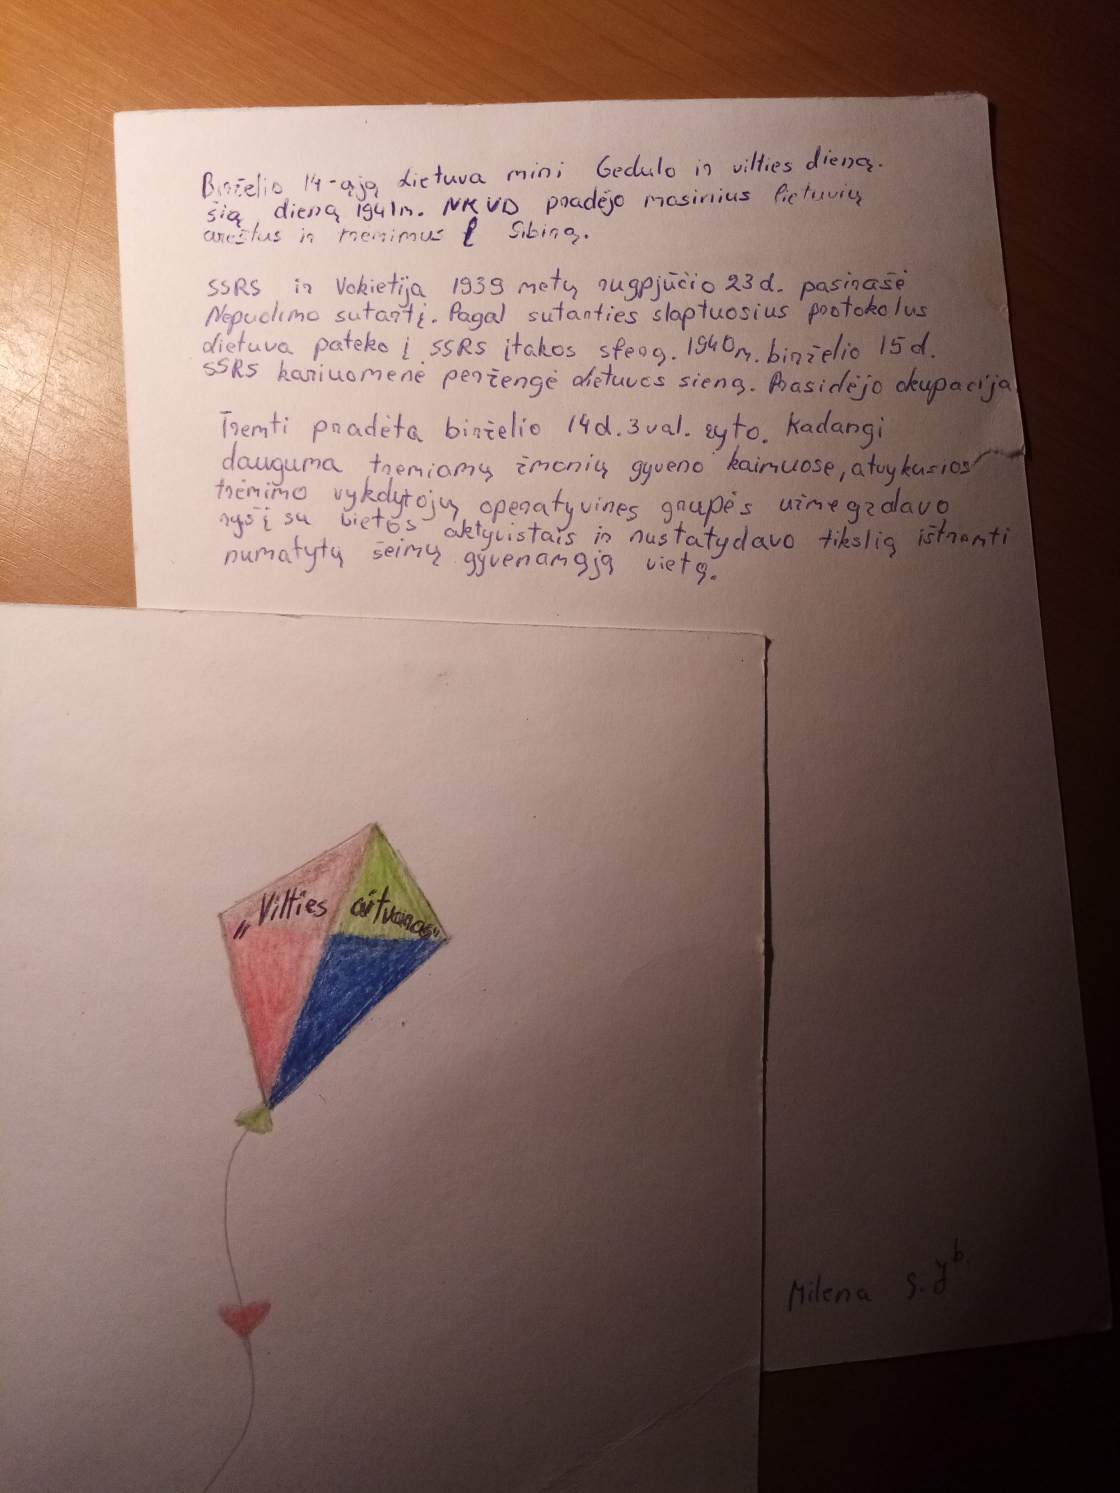 Birželio 14-ąją Lietuva mini Gedulo ir vilties dieną.
šią dieną 1941m. NKVD pradėjo masinius lietuvių
areštus ir trėmimus Į Sibirą.
SSRS ir Vokietija 1939 metų rugpjūčio 23 d. pasirašė
Nepuolimo sutartį. Pagal sutarties slaptuosius protokolus
Lietuva pateko į SSRS įtakos sferą. 1940m. birželio 15 d.
SSRS kariuomenė peržengė Lietuvos sieną. Prasidėjo okupacija
Tremti pradėta birželio 14d. 3 val. ryto. Kadangi
dauguma tremiamų žmonių gyveno kaimuose, atvykusios
trėmimo vykdytojų operatyvinės grupės užmegzdavo
ryšį su vietos aktyvistais ir nustatydavo tikslią ištremti
numatytų šeimų gyvenamąją vietą.
„Vilties aitvaras"
Milena G.